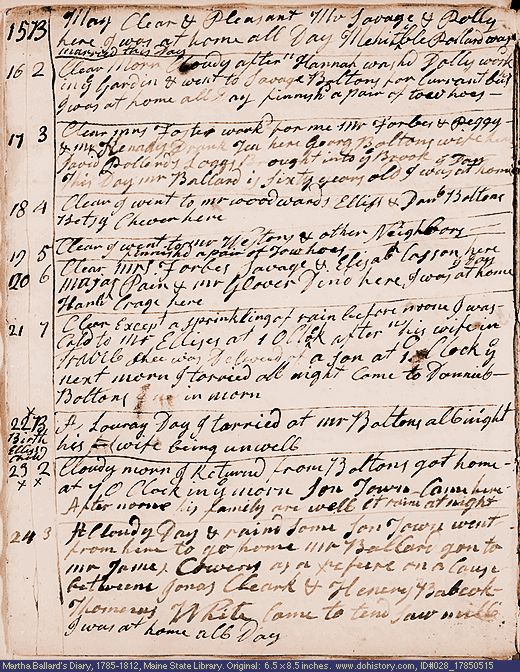 15 B May Clear & Pleasant Mr Savage & Polly
here I was at home all Day Mehitble Pollard was
married this Day
16 2 Clear morn Cloudy aftern Hannah washd Dolly work
in ye Gardin & went to Savage Boltons for Currant Bus
I was at home all Day finnishd a pair of tow hoes
17 3 Clear mrs Foster workd for me Mr Forbes & Peggy
& mr Kenady Drank Tea here Georg Boltons wife here
David Pollards Loggs Brought into ye Brook ys Day
This Day mr Ballard is sixty years old I was at home
18 4 Clear I went to mr woodwards Ellises & Danl Boltons
Betsy Chever here
19 5 Clear I went to mr Westons & other Neighbors
finnished a pair of Tow hoes
20 6 Clear mrs Forbes Savage & Elisab Casson here
majr Pain & mr Glover Dind here I was at home ys Day
Hanh Crage here
21 7 Clear Except a sprinkling of rain before noone I was
Calld to Mr Ellises at 1 O Clok aftern his wife in
Travele shee was Delivered of a son at 1 O Clock ye
next morn I tarried all night Came to Dannil
Boltons in morn
22 B
Birth
Ellises
Child
A Louray Day I tarried at mr Boltons all night
his wife being unwell
23 2 Cloudy morn I Returnd from Boltons got home
x x at O Clock in ye morn Jon Town Came here
After noone his family are well it rain at night
24 3 A Cloudy Day & rains some Jon Town went
from here to go home mr Ballard gon to
mr James Cowens as a referee on a Cause
betweene Jonas Cleark & Henery Babcok
Thomas White Came to tend saw mill
I was at home all Day
Martha Ballard's Diary, 1785-1812, Maine State Library. Original: 6.5 x 8.5 inches. www.dohistory.com, ID#028_17850515